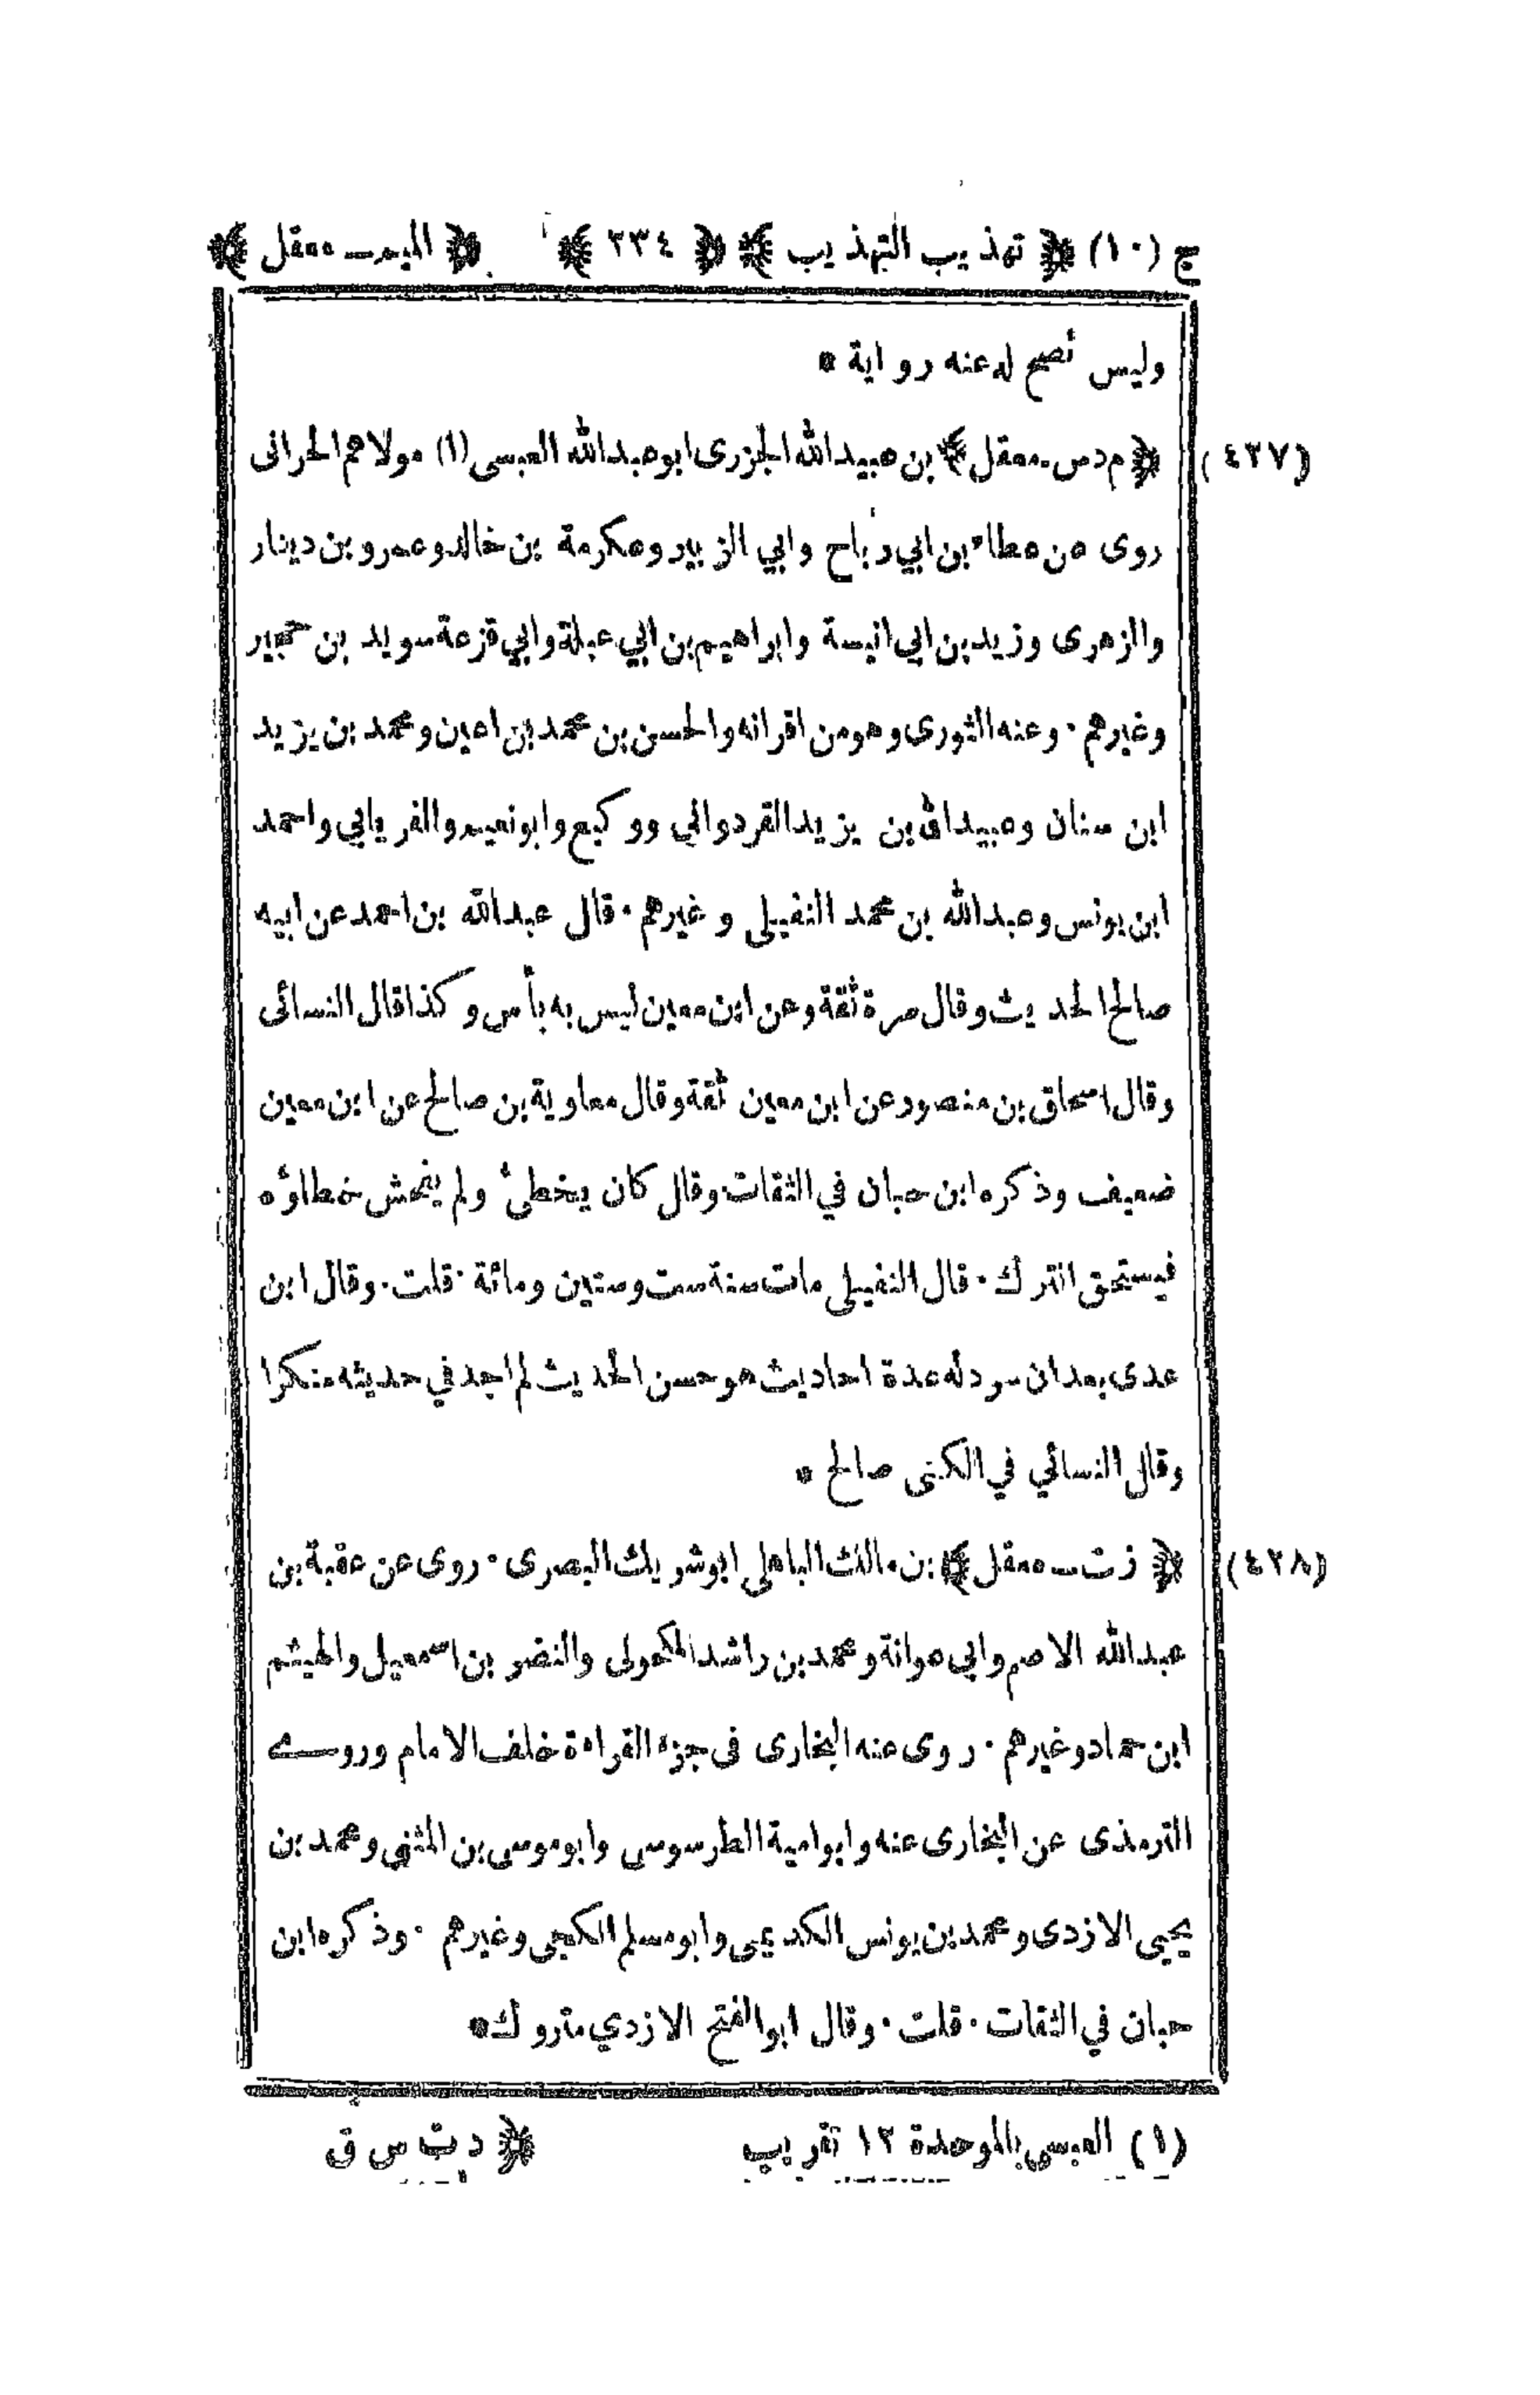 ج (١٠) ﴿ تهذيب التهذيب ﴾ ﴿ ٢٣٤ ﴾ ﴿ الميم ـ معقل ﴾
وليس تصح له عنه رواية *
(٤٣٧) ﴿ م د س ـ معقل ﴾ بن عبيد الله الجزرى ابو عبد الله العبسى (١) مولاهم الحرانى
روى عن عطاء بن ابي رباح وابي الزبير وعكرمة بن خالد وعمرو بن دينار
والزهرى وزيد بن ابي انيسة وابراهيم بن ابي عبلة وابي قزعة سويد بن حجير
وغيرهم ٠ وعنه الثورى وهو من اقرانه والحسن بن محمد بن اعين ومحمد بن يزيد
ابن سنان وعبيد الله بن يزيد القردوانى ووكيع وابو نعيم والفريابي واحمد
ابن يونس وعبد الله بن محمد النفيلى وغيرهم ٠ قال عبد الله بن احمد عن ابيه
صالح الحديث وقال مرة ثقة وعن ابن معين ليس به بأس وكذا قال النسائى
وقال اسحاق بن منصور عن ابن معين ثقة وقال معاوية بن صالح عن ابن معين
ضعيف وذكره ابن حبان في الثقات وقال كان يخطئ ولم يفحش خطاؤه
فيستحق الترك ٠ قال النفيلى مات سنة ست وستين ومائة ٠ قلت ٠ وقال ابن
عدى بعد ان سرد له عدة احاديث هو حسن الحديث لم اجد في حديثه منكرا
وقال النسائي في الكنى صالح *
(٤٣٨) ﴿ ز ت ـ معقل ﴾ بن مالك الباهلى ابو شريك البصرى ٠ روى عن عقبة بن
عبد الله الاصم وابي عوانة ومحمد بن راشد المكحولى والنضر بن اسمعيل والهيثم
ابن حماد وغيرهم ٠ روى عنه البخارى فى جزء القراءة خلف الامام وروى
الترمذى عن البخارى عنه وابو امية الطرسوسى وابو موسى بن المثنى ومحمد بن
يحيى الازدى ومحمد بن يونس الكديمى وابو مسلم الكجى وغيرهم ٠ وذكره ابن
حبان في الثقات ٠ قلت ٠ وقال ابو الفتح الازدي متروك *
(١) العبسى بالموحدة ١٢ تقريب ﴿ د ت س ق